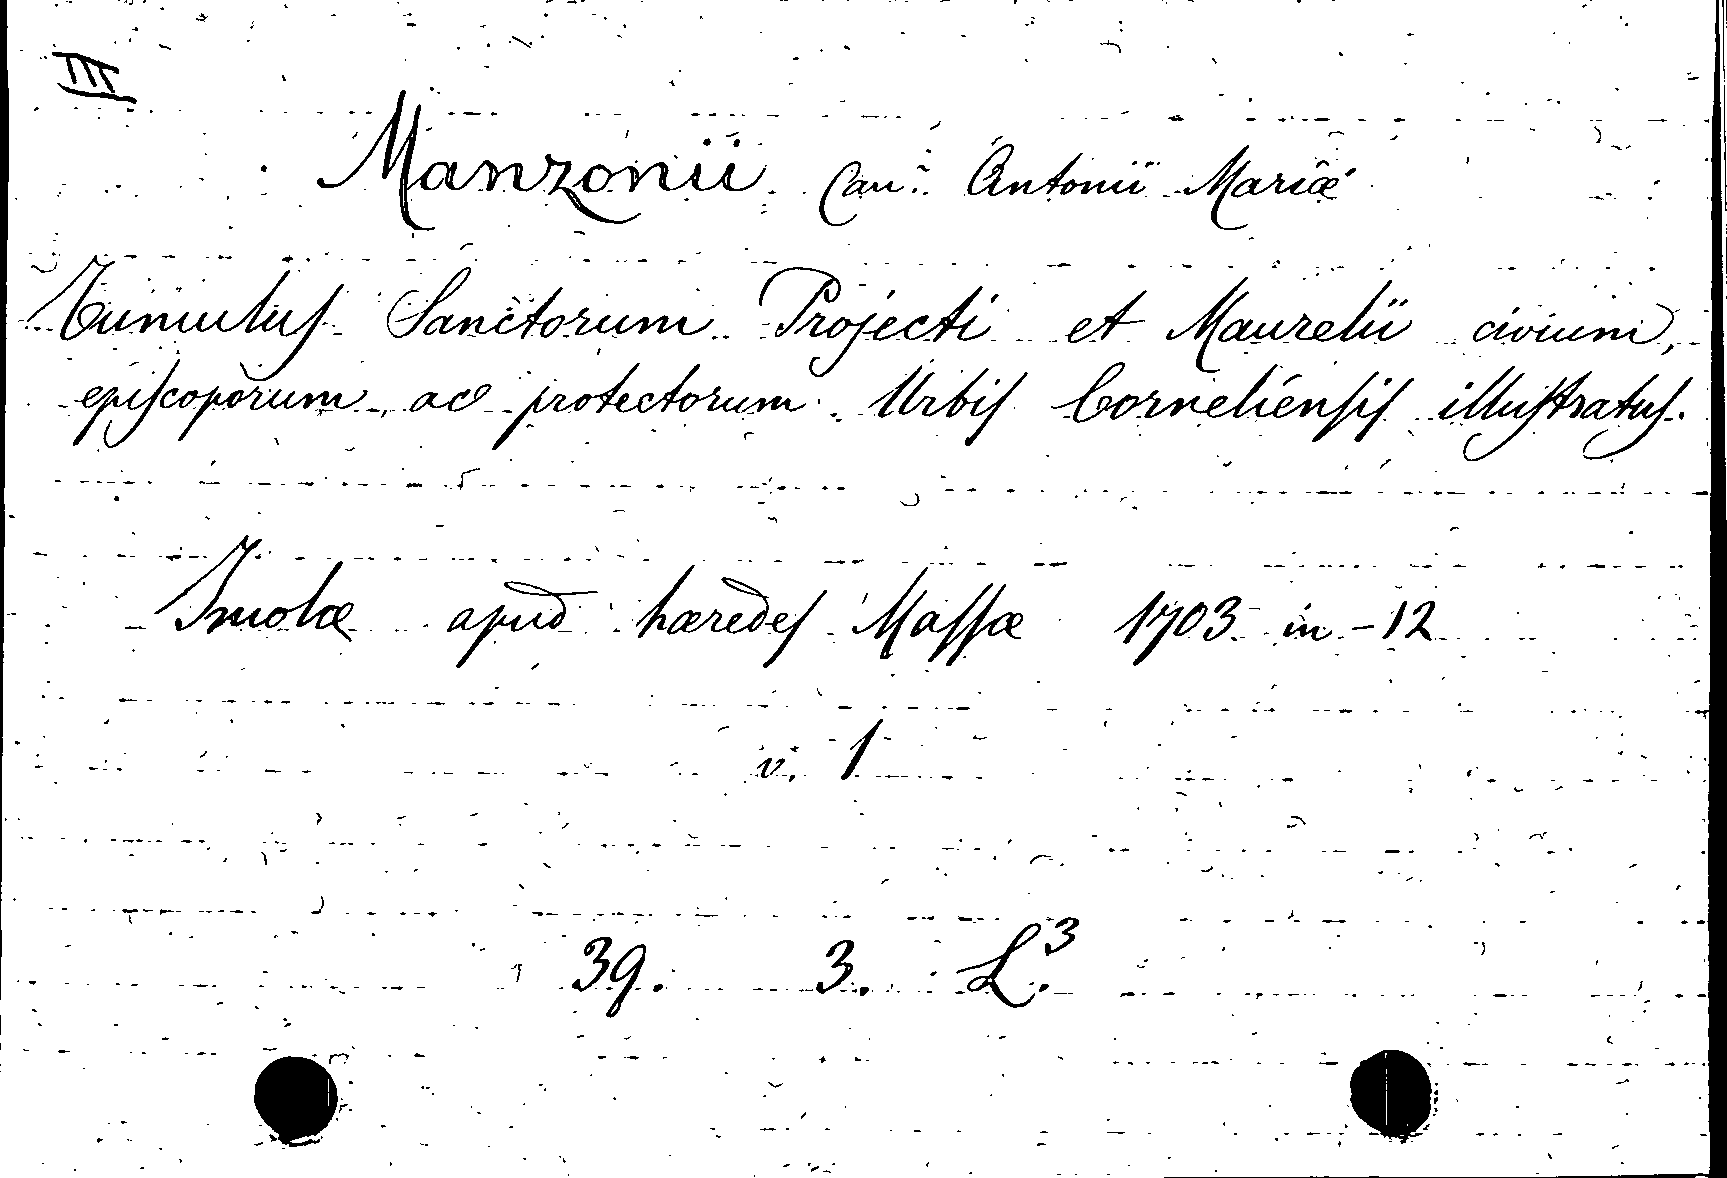 III
Manzonii Can.ⁱ Antonii Mariæ
Tumulus Sanctorum Projecti et Maurelii civium,
episcoporum ac protectorum Urbis Corneliensis illustratus.
Imolæ apud hæredes Massæ 1703 in-12
v. 1
39. 3. L.³